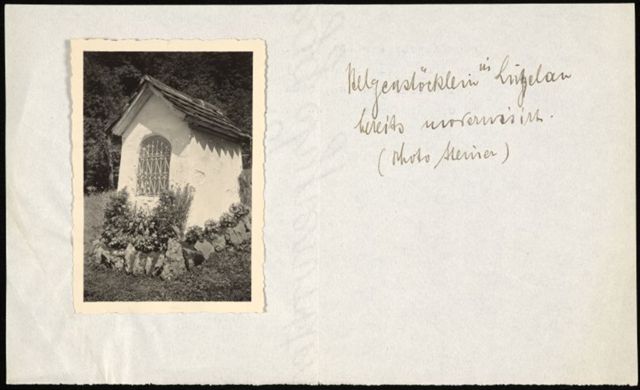 Helgenstöcklein in Lützelau
bereits modernisirt.
(Photo Steiner)